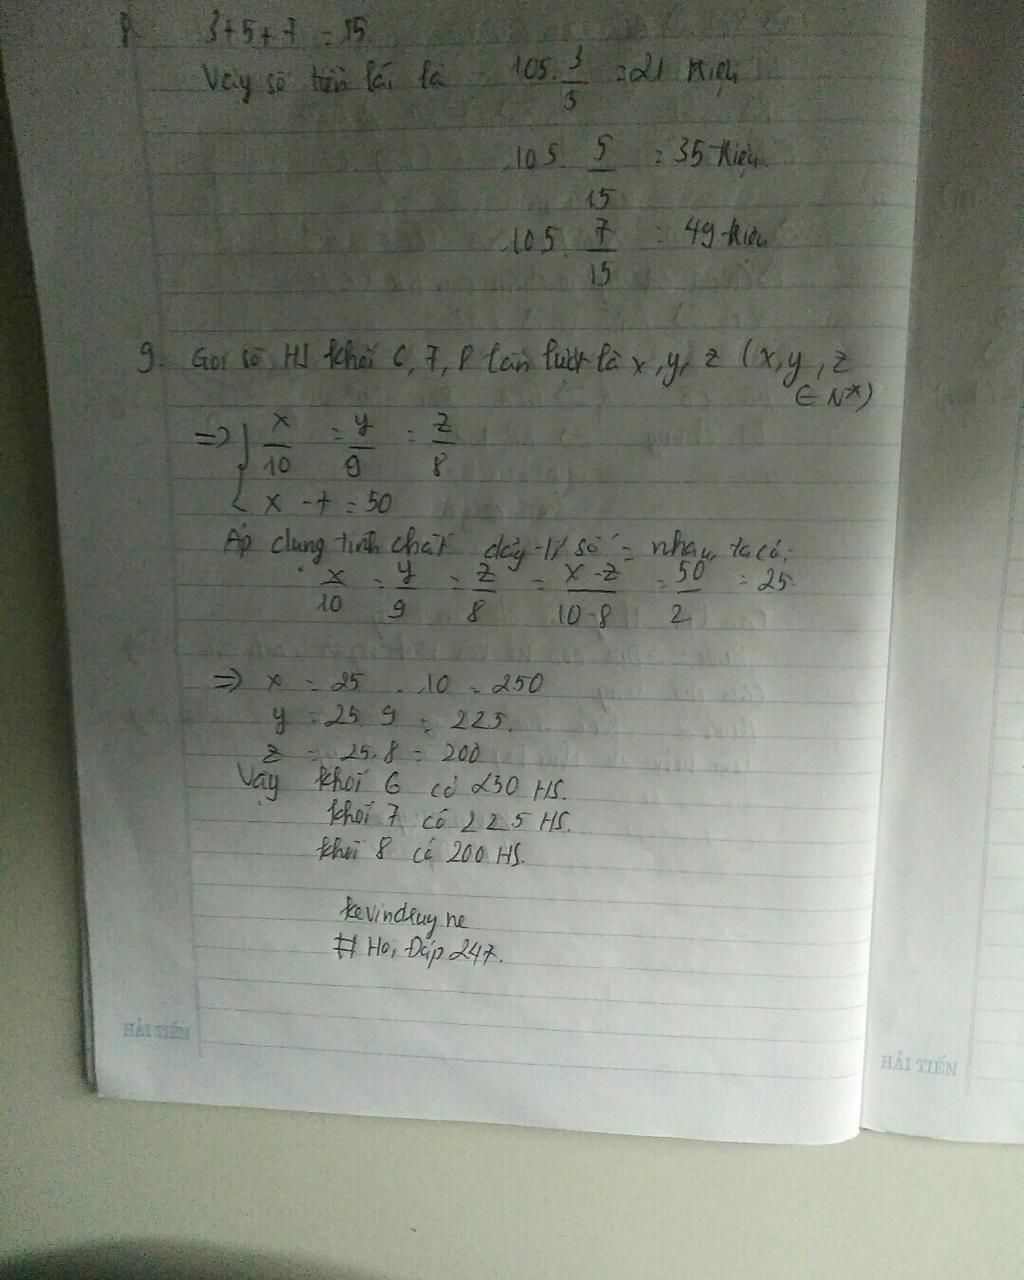 8. 3+5+7 = 15.
Vậy số tiền lãi là 105. 3/5 = 21 triệu
105 5/15 = 35 triệu
105. 7/15 = 49 triệu
9. Gọi số HS khối 6, 7, 8 lần lượt là x, y, z (x, y, z
∈ N*)
=> { x/10 = y/9 = z/8
x - t = 50
Áp dụng tính chất dãy tỉ số = nhau, ta có:
x/10 = y/9 = z/8 = x-z/10-8 = 50/2 = 25
=> x = 25 . 10 = 250
y = 25. 9 = 225.
z = 25.8 = 200
Vậy khối 6 có 250 HS.
khối 7 có 225 HS.
khối 8 có 200 HS.
kevinduy ne
# Hoi Đáp 247.
HẢI TIẾN
HẢI TIẾN